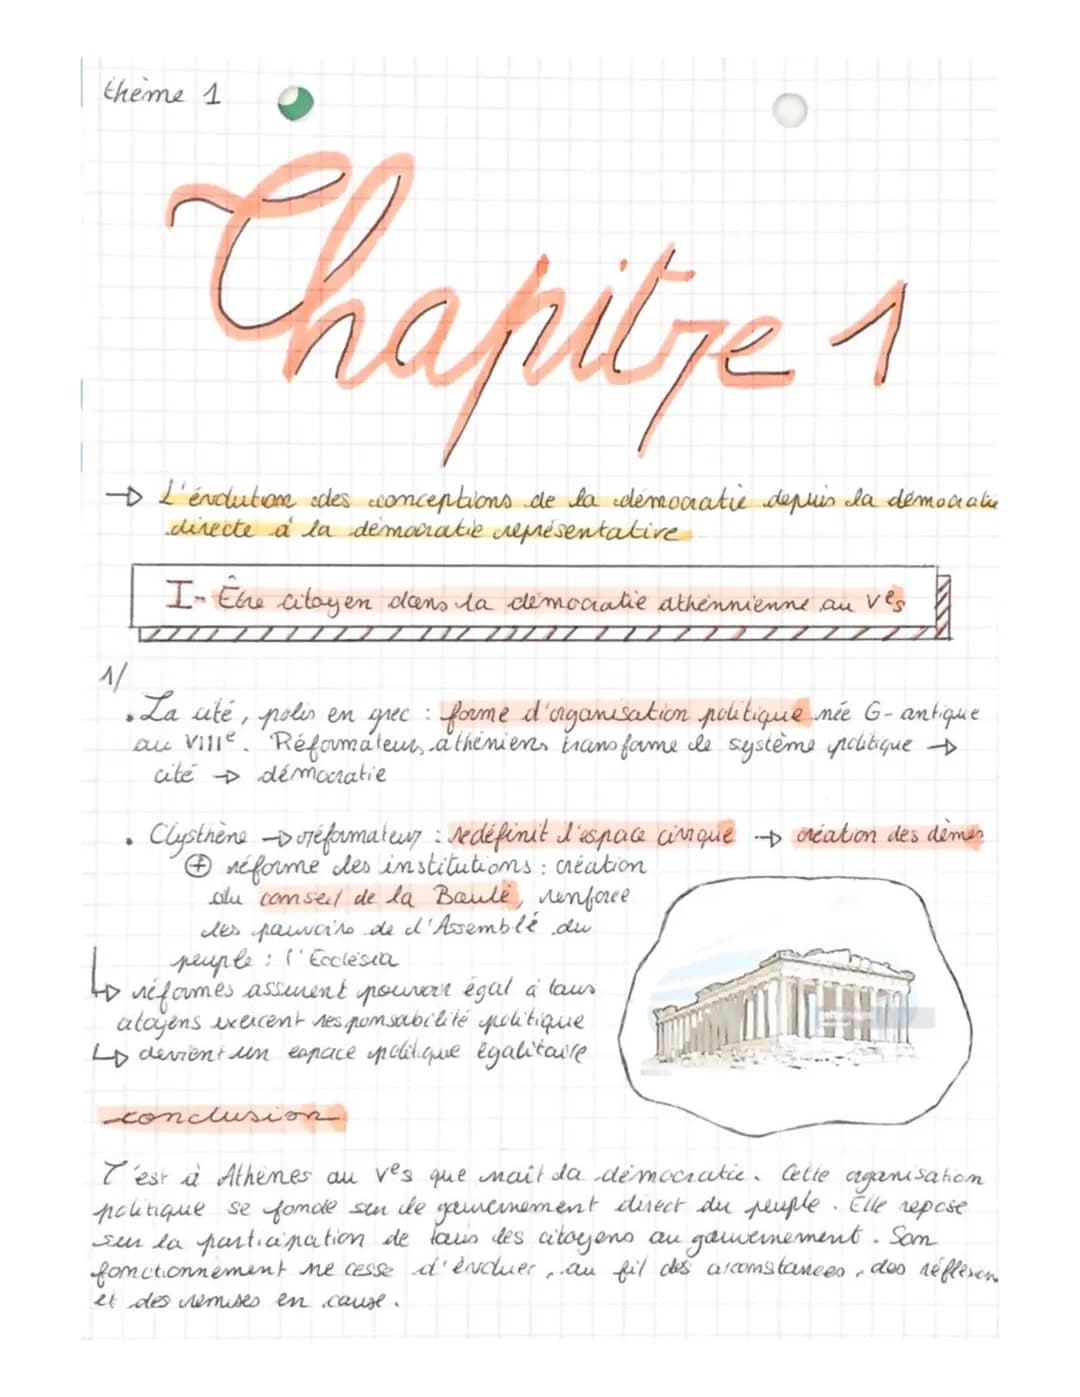 thème 1
Chapitre 1
→ L'évolution des conceptions de la démocratie depuis la démocratie
directe à la démocratie représentative
I- Être citoyen dans la démocratie athénnienne au Ves
1/
• La cité, polis en grec : forme d'organisation politique née G-antique
au VIIIe. Réformateurs athéniens transforme le système politique →
cité → démocratie
• Clysthène → réformateur : redéfinit l'espace civique → création des dèmes
⊕ réforme des institutions : création
du conseil de la Boulè, renforce
les pouvoirs de l'Assemblé du
peuple : l'Ecclésia
↳ réformes assurent pouvoir égal à tous
citoyens exercent responsabilité politique
↳ devient un espace politique égalitaire
conclusion
C'est à Athènes au Ves que naît la démocratie. Cette organisation
politique se fonde sur le gouvernement direct du peuple. Elle repose
sur la participation de tous les citoyens au gouvernement. Son
fonctionnement ne cesse d'évoluer, au fil des circonstances, des réflexion
et des remises en cause.